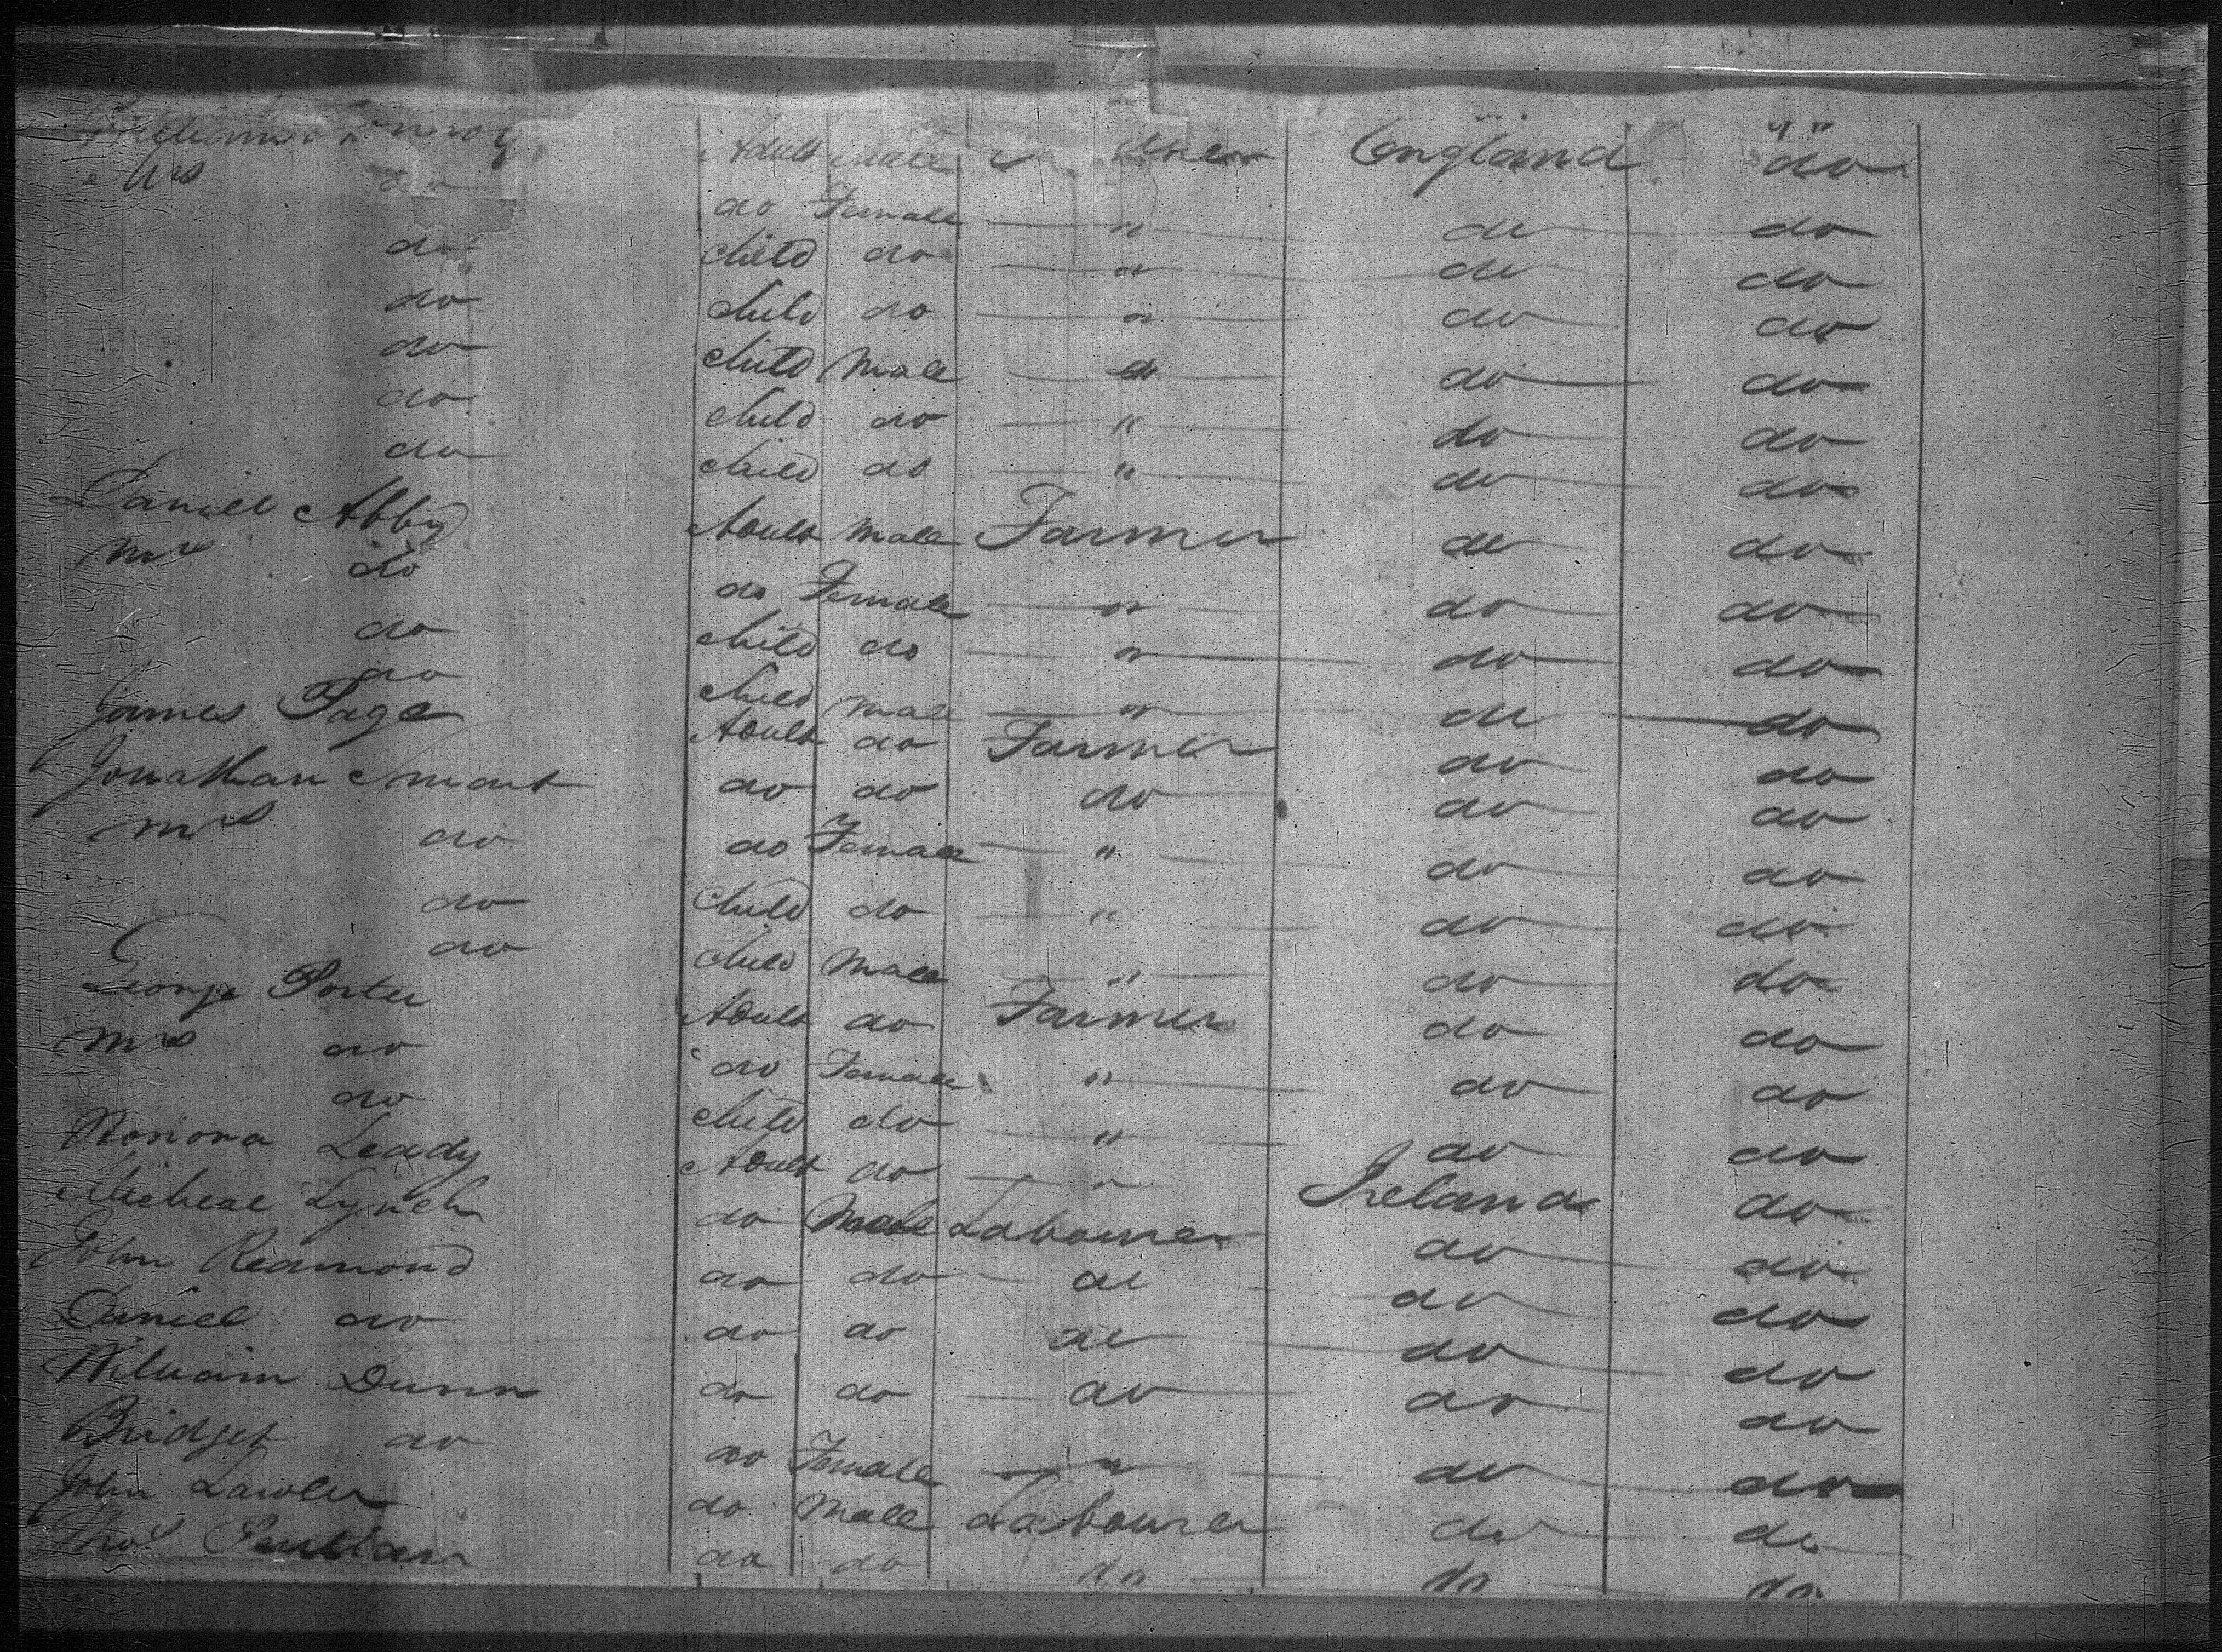 Adult Male England do
Mrs do do Female " do do
do Child do " do do
do Child do " do do
do Child Male " do do
do Child do " do do
do Child do " do do
Daniell Abby Adult Male Farmer do do
Mrs do do Female " do do
do Child do " do do
do Child Male " do do
James Page Adult do Farmer do do
Jonathan Smart do do do do do
Mrs do do Female " do do
do Child do " do do
do Child Male " do do
George Porter Adult do Farmer do do
Mrs do do Female " do do
do Child do " do do
Leady Adult do " Ireland do
Micheal Lynch do Male Labourer do do
John Redmond do do do do do
Daniel do do do do do do
William Dunn do do do do do
Bridget do do Female " do do
John Lawler do Male Labourer do do
Thos do do do do do